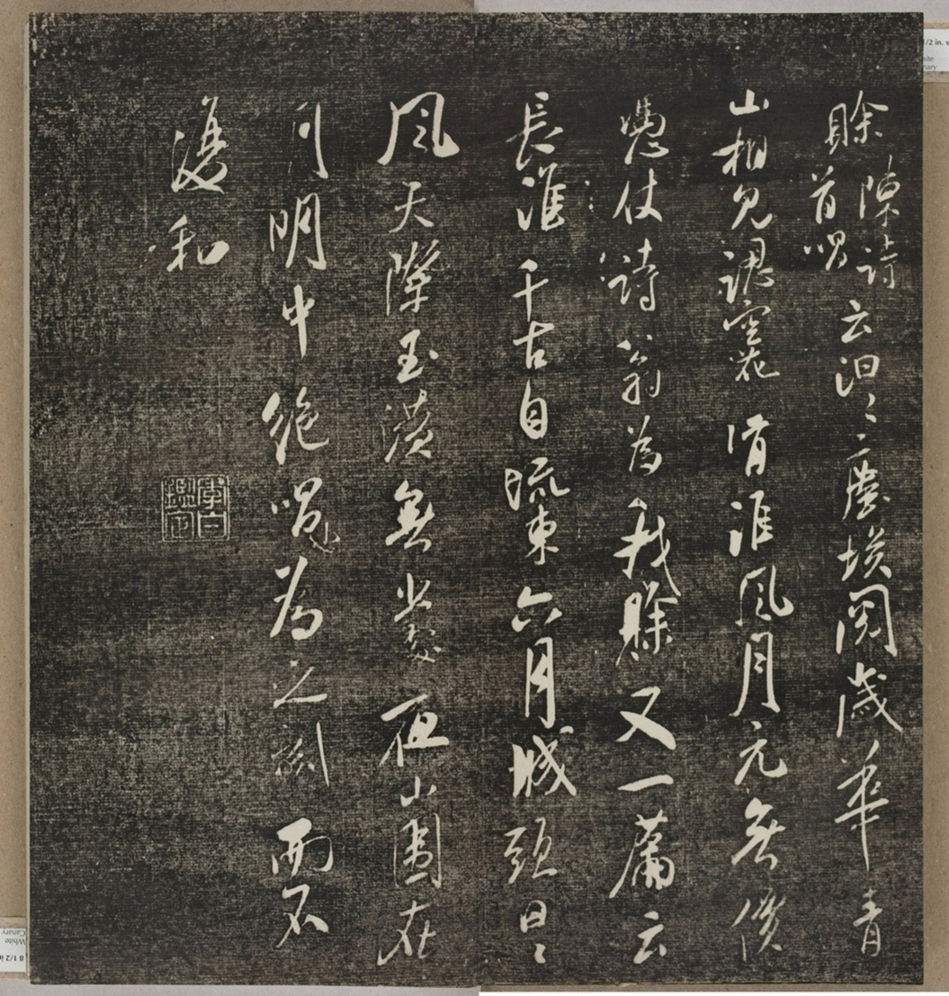 賒陳詩首唱云汩〻塵埃閱歲華青
山相見認空花清淮風月元無價
憑仗詩翁為我賒又一篇云
長淮千古自流東六月城頭日〻
風天際玉潢無處夜山圍在
月明中絕唱為之刻而不
復和